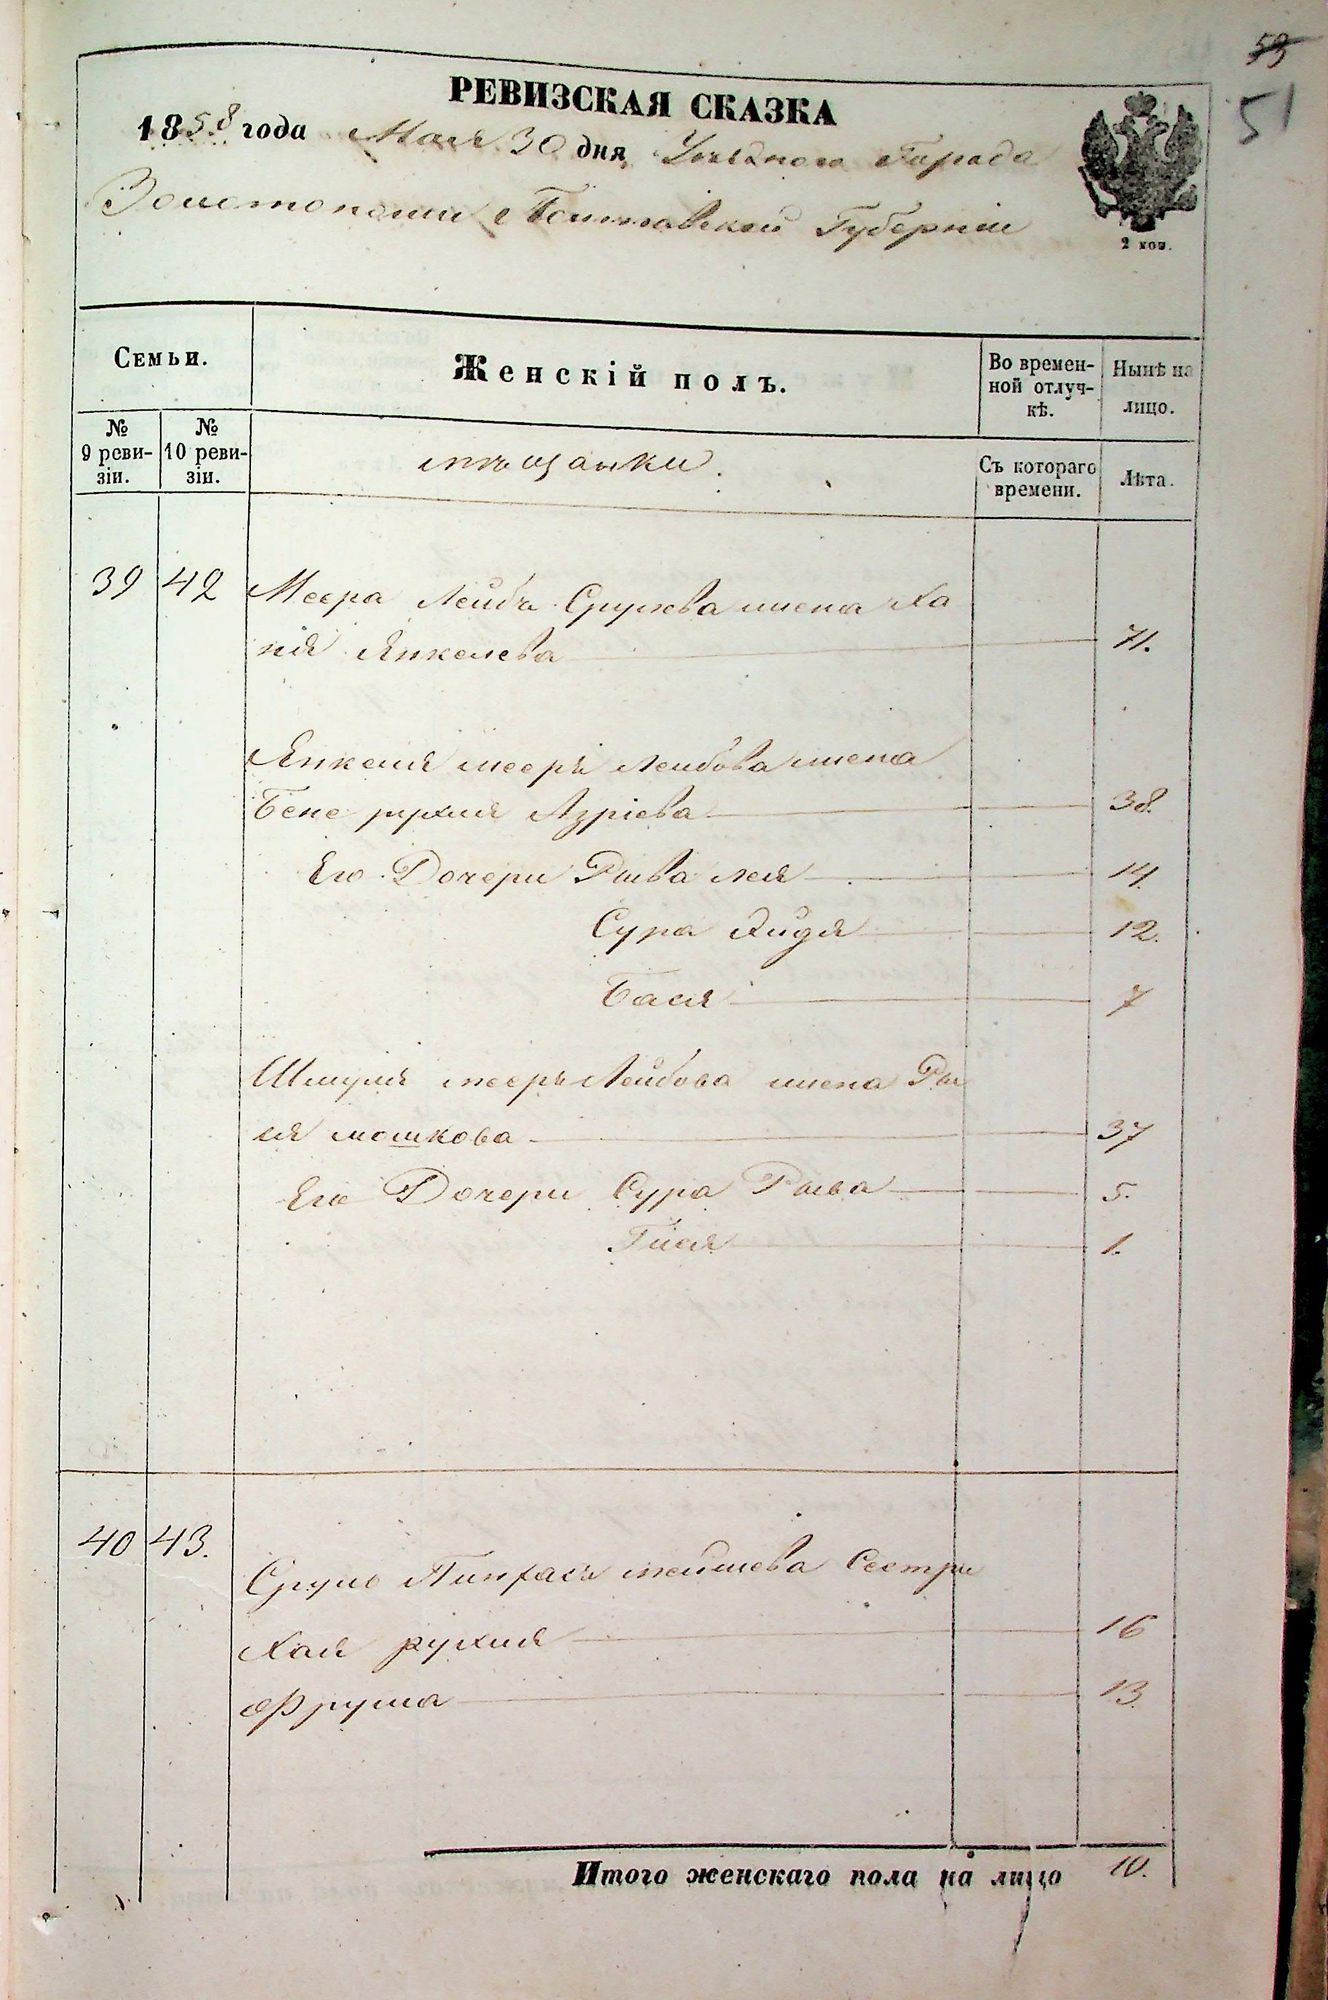 53
51
РЕВИЗСКАЯ СКАЗКА
1858 года Мая 30 дня Уѣзднаго Города
Золотоноши Полтавской Губерніи
2 коп.
Семьи.
Женскій полъ.
Во времен-
ной отлуч-
кѣ.
Нынѣ на
лицо.
№
9 реви-
зіи.
№
10 реви-
зіи.
мѣщанки.
Съ котораго
времени.
Лѣта.
39 42 Меера Лейбъ Срулева жена Ха
ня Янкелева 71.
Янкеля Мееръ Лейбова жена
Бене рухля Азріева 38.
Его Дочери Рыва лея 14.
Сура Хидя 12.
Бася 7
Шмуля мееръ Лейбова жена Ры
ся мошкова 37
Его Дочери Сура Рыва 5.
Гися 1.
40 43. Сруль Пинхасъ мейшева Сестры
Хая рухля 16
Фрума 13.
Итого женскаго пола на лицо 10.